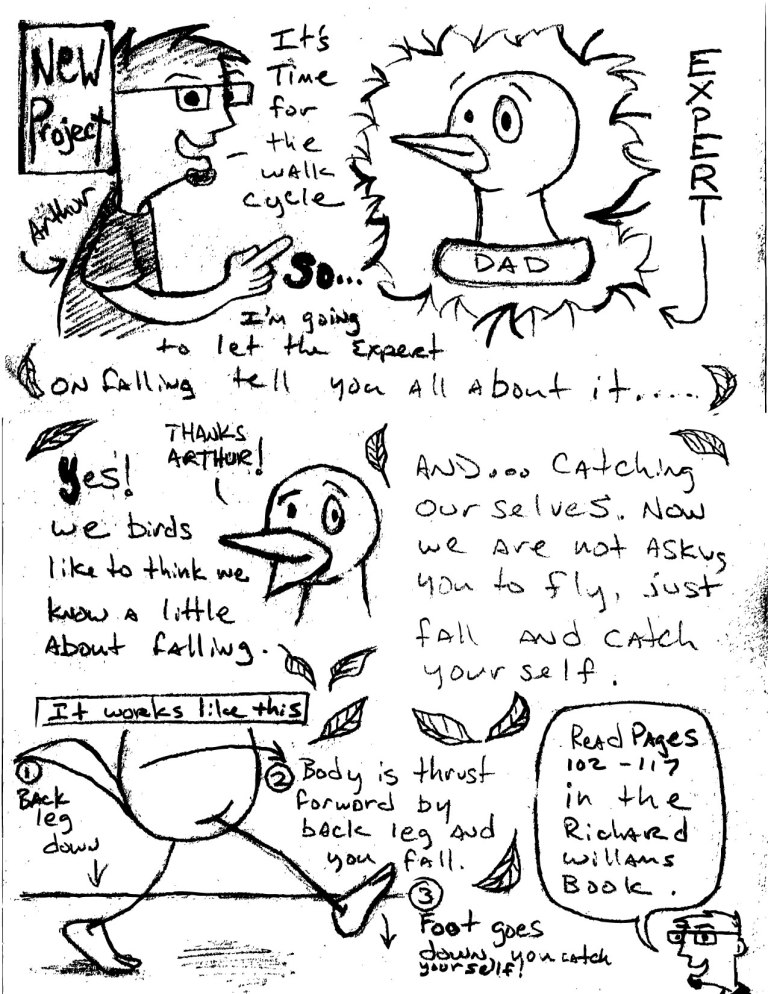 New
Project
Arthur
It's
Time
for
the
walk
cycle
EXPERT
DAD
So...
I'm going
to let the Expert
ON falling tell you all about it.....
Yes!
we birds
like to think we
know a little
About falling.
THANKS
ARTHUR!
AND... Catching
ourselves. Now
we are not Askug
you to fly, just
fall and catch
yourself.
It works like this
① Back
leg
down
② Body is thrust
forward by
back leg and
you fall.
③
Foot goes
down, you catch
yourself!
Read Pages
102 - 117
in the
Richard
Willams
Book.